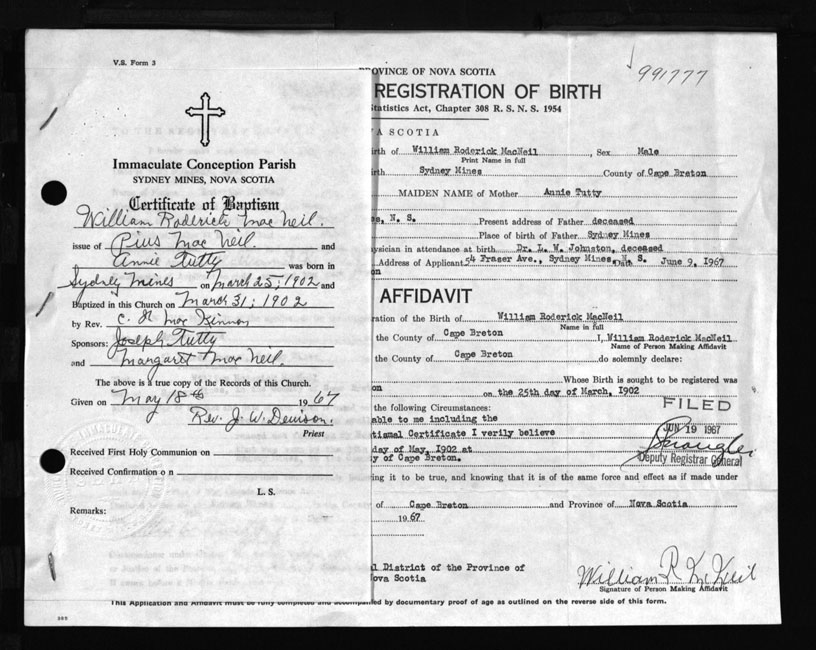 V.S. Form 3
991777
Immaculate Conception Parish
SYDNEY MINES, NOVA SCOTIA
Certificate of Baptism
William Roderick Mac Neil.
issue of Pius Mac Neil. and
Annie Tutty was born in
Sydney Mines on March 25; 1902 and
Baptized in this Church on March 31; 1902
by Rev. C. Mac Kinnon
Sponsors: Joseph Tutty
and Margaret Mac Neil.
The above is a true copy of the Records of this Church.
Given on May 18th 1967
Rev. J. W. Denison.
Priest
Received First Holy Communion on
Received Confirmation o n
L. S.
Remarks:
OVINCE OF NOVA SCOTIA
REGISTRATION OF BIRTH
tatistics Act, Chapter 308 R. S. N. S. 1954
VA SCOTIA
irth of William Roderick MacNeil, Sex Male
Print Name in full
irth Sydney Mines County of Cape Breton
MAIDEN NAME of Mother Annie Tutty
es, N. S. Present address of Father deceased
Place of birth of Father Sydney Mines
ysician in attendance at birth Dr. L. W. Johnston, deceased
Address of Applicant 54 Fraser Ave., Sydney Mines, N. S. Date June 9, 1967
on
AFFIDAVIT
ration of the Birth of William Roderick MacNeil
Name in full
the County of Cape Breton I, William Roderick MacNeil
Name of Person Making Affidavit
the County of Cape Breton do solemnly declare:
Whose Birth is sought to be registered was
on on the 25th day of March, 1902
the following Circumstances:
FILED
able to me including the
JUN 19 1967
tismal Certificate I verily believe
day of May, 1902 at
y of Cape Breton.
Deputy Registrar General
ing it to be true, and knowing that it is of the same force and effect as if made under
of Cape Breton and Province of Nova Scotia
1967
l District of the Province of
Nova Scotia
William R McNeil
Signature of Person Making Affidavit
This Application and Affidavit must be fully completed and accompanied by documentary proof of age as outlined on the reverse side of this form.